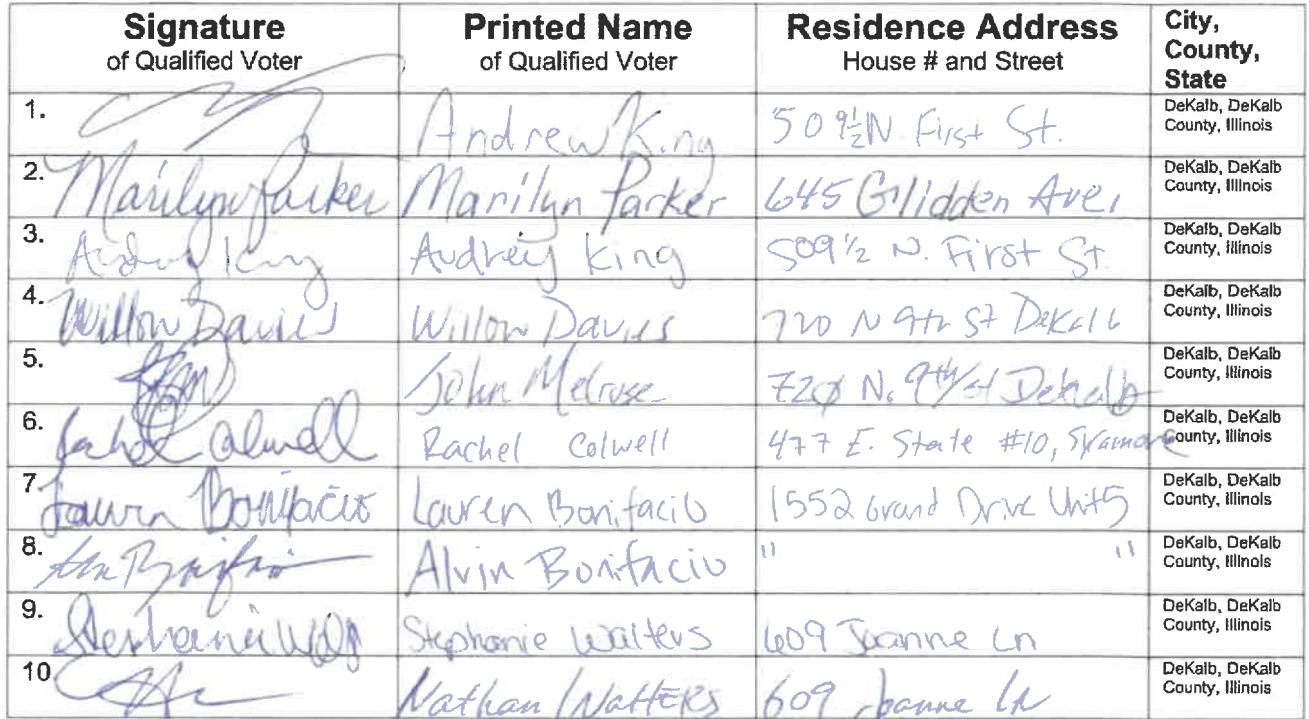 Signature
of Qualified Voter
Printed Name
of Qualified Voter
Residence Address
House # and Street
City,
County,
State
1. Andrew King 509½ N. First St. DeKalb, DeKalb
County, Illinois
2. Marilyn Parker Marilyn Parker 645 Glidden Ave. DeKalb, DeKalb
County, Illinois
3. Audrey King Audrey King 509 1/2 N. First St. DeKalb, DeKalb
County, Illinois
4. Willow Davies Willow Davies 720 N 9th St DeKalb DeKalb, DeKalb
County, Illinois
5. John Melrose 720 N. 9th St DeKalb DeKalb, DeKalb
County, Illinois
6. Rachel Colwell Rachel Colwell 477 E. State #10, Sycamore DeKalb, DeKalb
County, Illinois
7 Lauren Bonifacio Lauren Bonifacio 1552 Grand Drive Unit 5 DeKalb, DeKalb
County, Illinois
8. Alvin Bonifacio " " DeKalb, DeKalb
County, Illinois
9. Stephanie Stephanie Walters 609 Joanne Ln DeKalb, DeKalb
County, Illinois
10 Nathan Watters 609 Joanne Ln DeKalb, DeKalb
County, Illinois